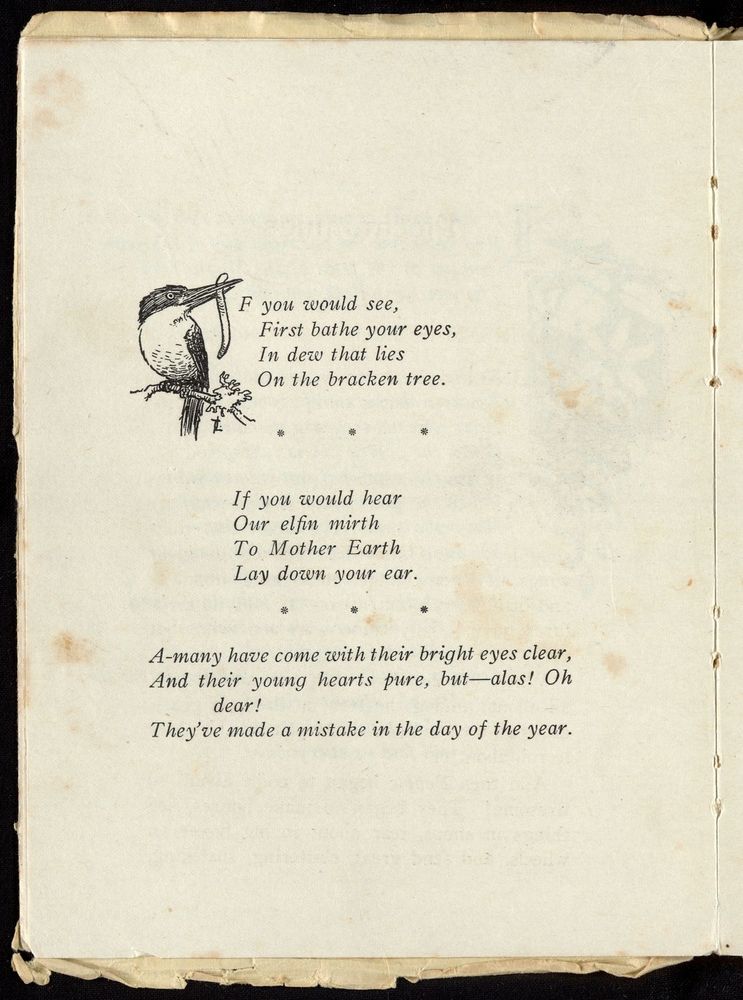 IF you would see,
First bathe your eyes,
In dew that lies
On the bracken tree.
* * *
If you would hear
Our elfin mirth
To Mother Earth
Lay down your ear.
* * *
A-many have come with their bright eyes clear,
And their young hearts pure, but—alas! Oh
dear!
They've made a mistake in the day of the year.